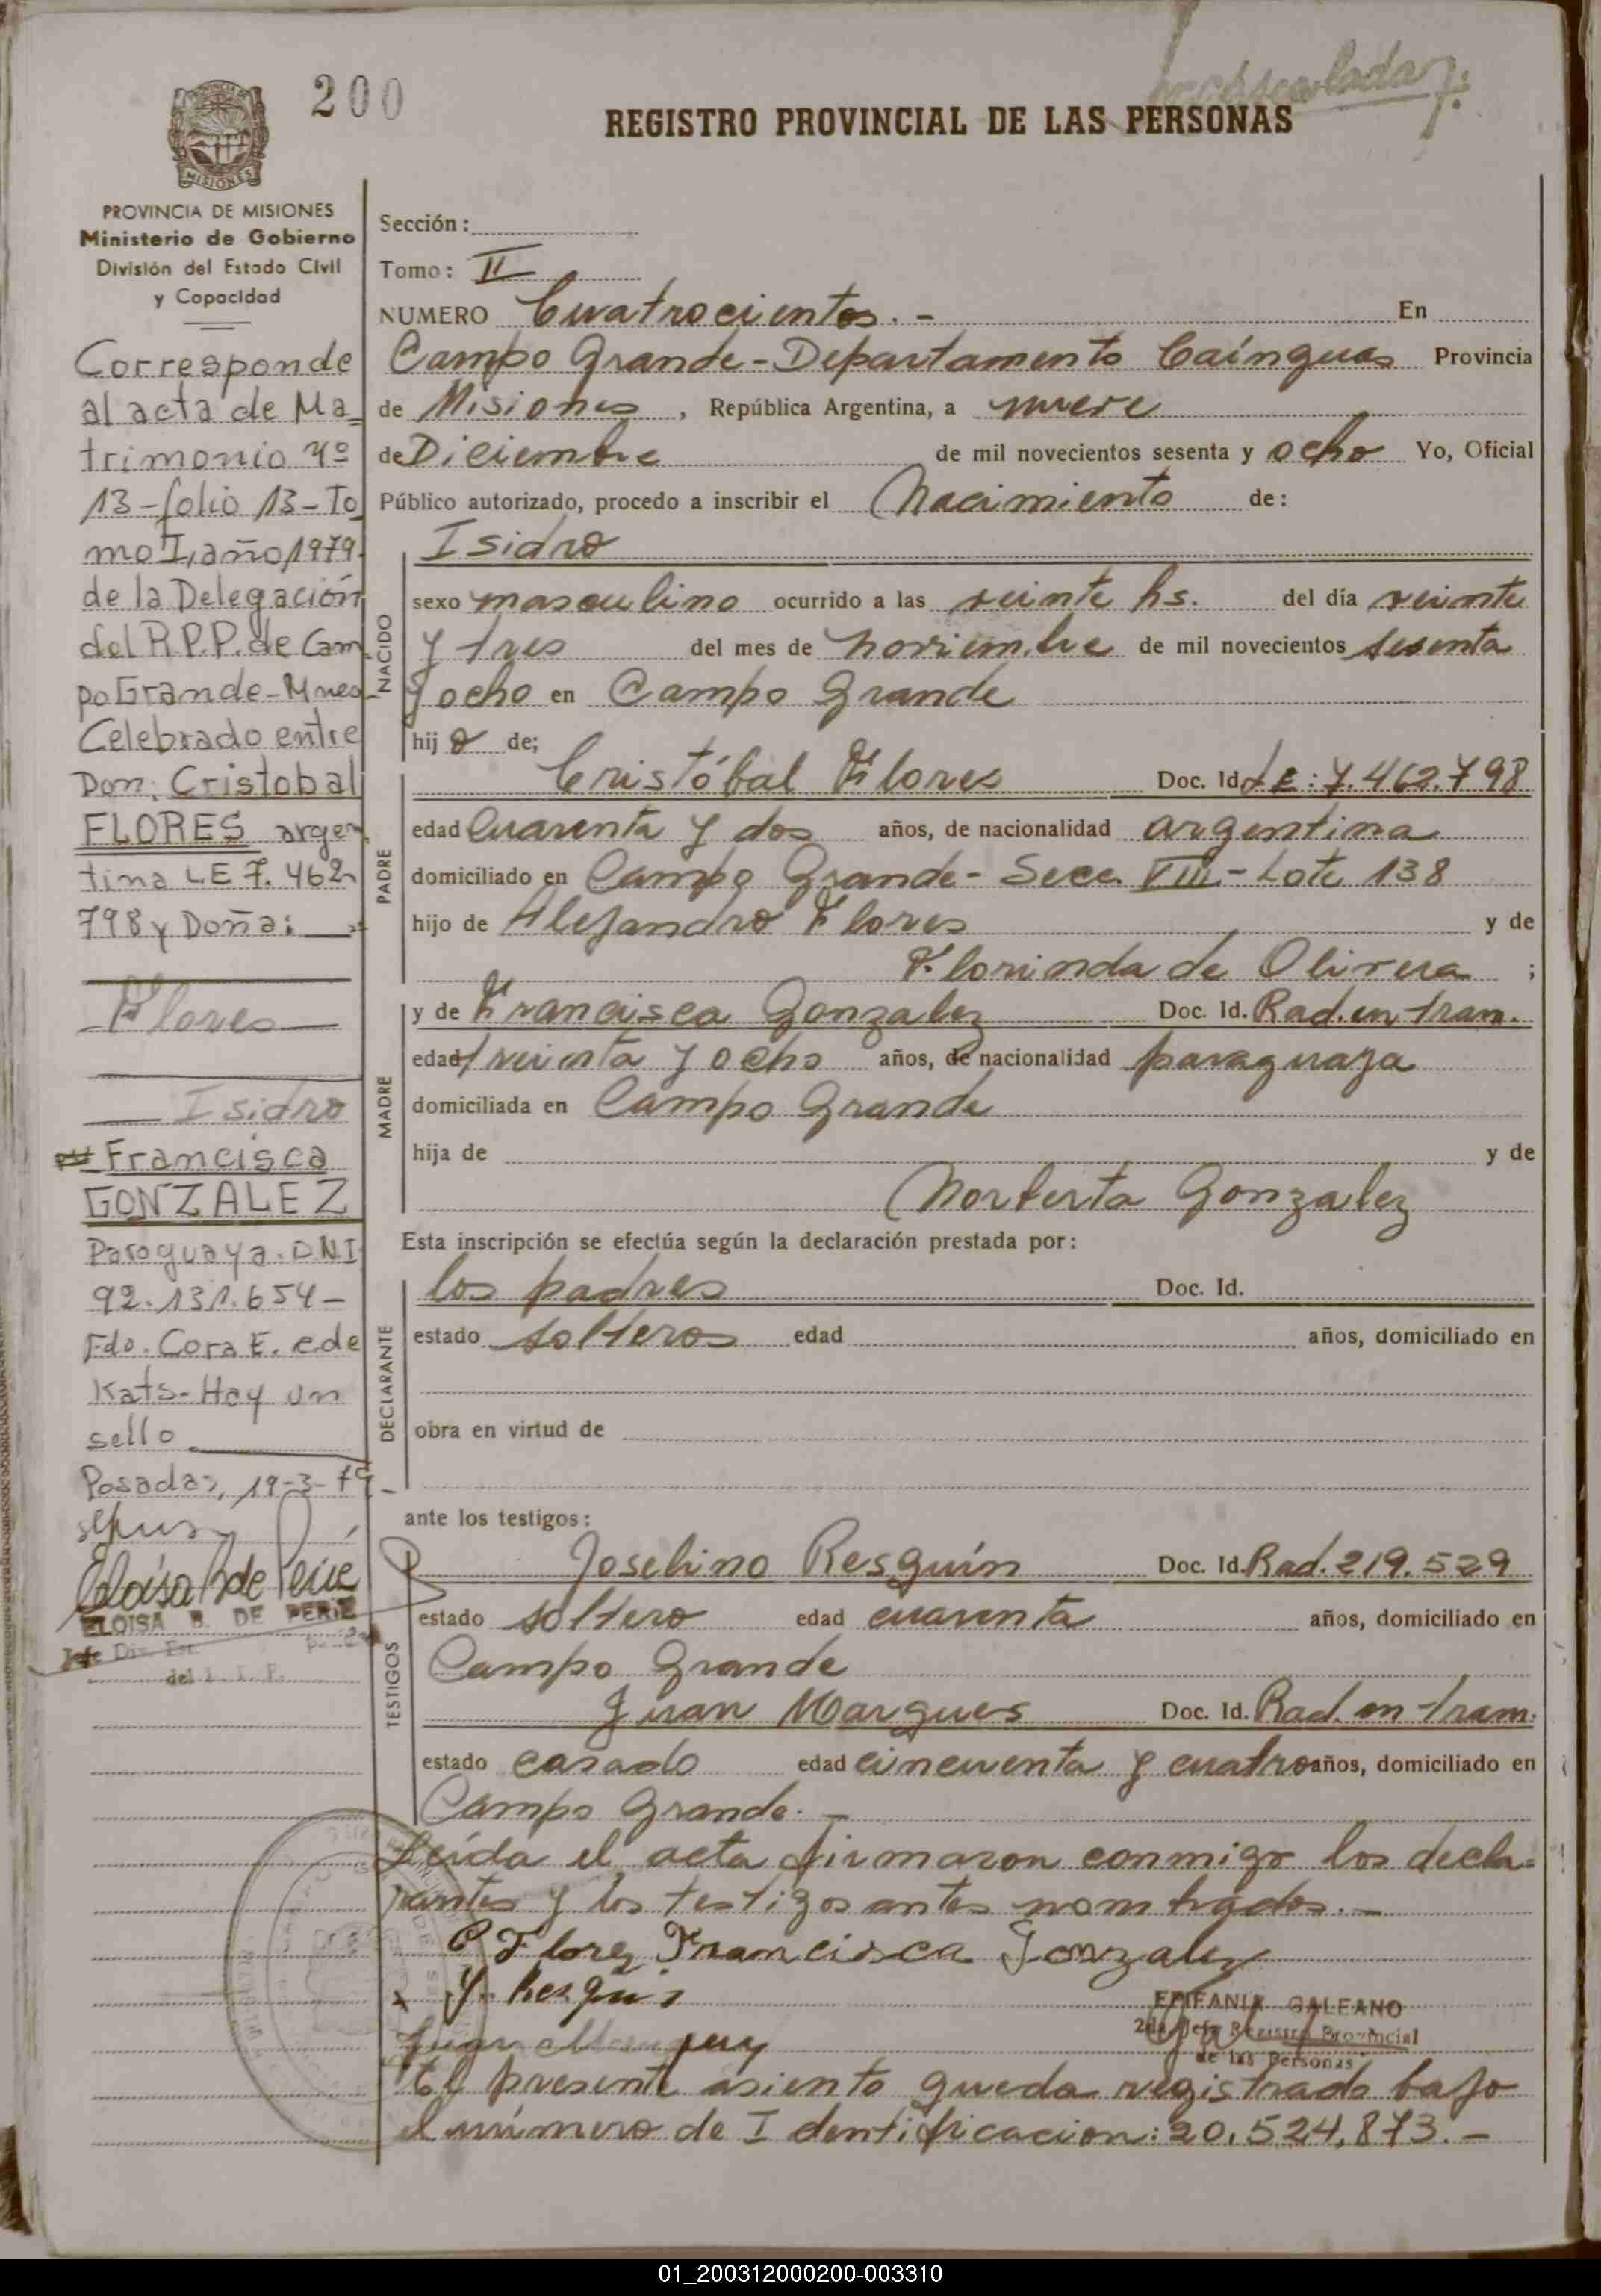 200
REGISTRO PROVINCIAL DE LAS PERSONAS
MISIONES
PROVINCIA DE MISIONES
Ministerio de Gobierno
División del Estado Civil
y Capacidad
Corresponde
al acta de Ma=
trimonio Nº
13-folio 13-To
mo I, año 1979.
de la Delegación
del R.P.P. de Cam
po Grande-Mnes
Celebrado entre
Don: Cristobal
FLORES argen
tina LE 7.462.
798 y Doña:
Flores
Isidro
Francisca
GONZALEZ
Paraguaya. D.N.I
92.131.654-
Fdo. Cora E. C. de
Kats- Hay un
sello
Posadas, 19-3-79
ELOISA B. DE PERIE
Jefe Div. Est.
Sección:
Tomo: II
NUMERO Cuatrocientos.- En
Campo Grande-Departamento Caínguas Provincia
de Misiones, República Argentina, a nueve
de Diciembre de mil novecientos sesenta y ocho Yo, Oficial
Público autorizado, procedo a inscribir el Nacimiento de:
NACIDO
Isidro
sexo masculino ocurrido a las veinte hs. del día veinte
y tres del mes de noviembre de mil novecientos sesenta
y ocho en Campo Grande
hijo de;
PADRE
Cristóbal Flores Doc. Id. L E: 7.462.798
edad Cuarenta y dos años, de nacionalidad argentina
domiciliado en Campo Grande- Secc. VIII- Lote 138
hijo de Alejandro Flores y de
Florinda de Olivera ;
MADRE
y de Francisca Gonzalez Doc. Id. Rad. en tram.
edad treinta y ocho años, de nacionalidad paraguaya
domiciliada en Campo Grande
hija de y de
Norberta Gonzalez
Esta inscripción se efectúa según la declaración prestada por:
DECLARANTE
los padres Doc. Id.
estado solteros edad años, domiciliado en
obra en virtud de
ante los testigos:
TESTIGOS
Joselino Resguín Doc. Id. Rad. 219.529
estado soltero edad cuarenta años, domiciliado en
Campo Grande
Juan Margues Doc. Id. Rad. en tram.
estado casado edad cincuenta y cuatro años, domiciliado en
Campo Grande.-
Leída el acta firmaron conmigo los decla=
rantes y los testigos antes nombrados.-
C Flores Francisca Gonzalez
EPIFANIA GALEANO
2do Jefe Registro Provincial
de las Personas
El presente asiento queda registrado bajo
el número de Identificacion: 20.524.873.-
01_200312000200-003310